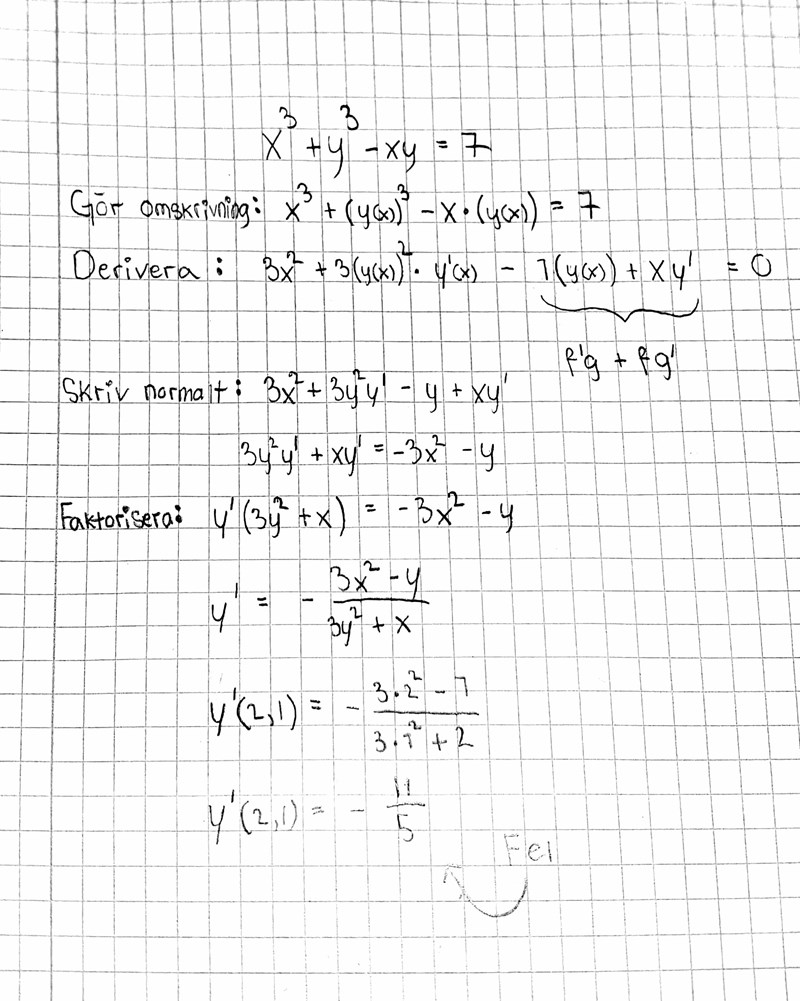 x³ + y³ - xy = 7
Gör omskrivning: x³ + (y(x))³ - x·(y(x)) = 7
Derivera: 3x² + 3(y(x))²· y'(x) - 1(y(x)) + xy' = 0
f'g + fg'
Skriv normalt: 3x² + 3y²y' - y + xy'
3y²y' + xy' = -3x² - y
Faktorisera: y'(3y² + x) = -3x² - y
y' = - (3x² - y)/(3y² + x)
y'(2,1) = - (3·2² - 1)/(3·1² + 2)
y'(2,1) = - 11/5
Fel